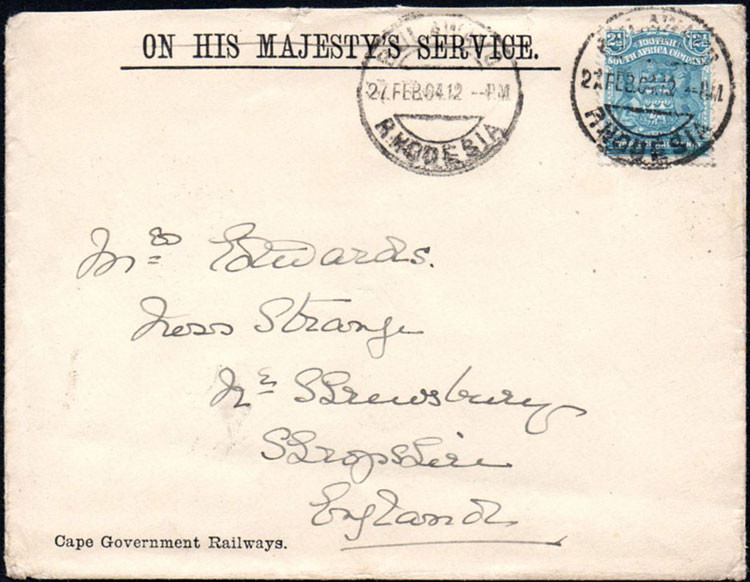 ON HIS MAJESTY'S SERVICE.
BULAWAYO
27.FEB.04.12 --PM
RHODESIA
BULAWAYO
27.FEB.04.12 --PM
RHODESIA
2½ BRITISH 2½
SOUTH AFRICA COMPANY
Mrs Edwards.
Ness Strange
Nr Shrewsbury
Shropshire
England
Cape Government Railways.